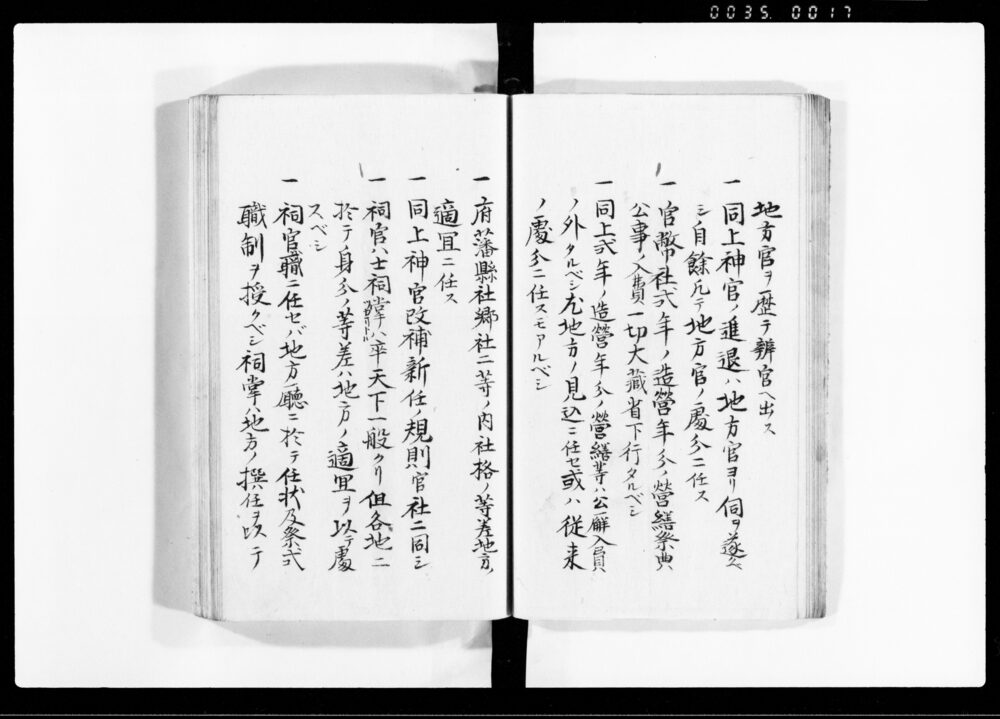 0035. 0017
地方官ヲ歴テ辨官ヘ出ス
一 同上神官ノ進退ハ地方官ヨリ伺ヲ遂クベ
シ自餘凡テ地方官ノ處分ニ任ス
一 官幣社式年ノ造營年分ノ營繕祭典
公事ノ入費一切大藏省下行タルベシ
一 同上式年ノ造營年分ノ營繕等ハ公廨入員
ノ外タルベシ尤地方ノ見込ニ任セ或ハ従来
ノ處分ニ任スモアルベシ
一 府藩縣社郷社二等ノ内社格ノ等差地方ノ
適宜ニ任ス
一 同上神官改補新任ノ規則官社ニ同シ
一 祠官ハ士祠掌ハ卒天下一般タリ但各地ニ
於テ身分ノ等差ハ地方ノ適宜ヲ以テ處
スベシ
一 祠官職ニ任セバ地方廳ニ於テ任状及祭式
職制ヲ授クベシ祠掌ハ地方ノ撰任ヲ以テ